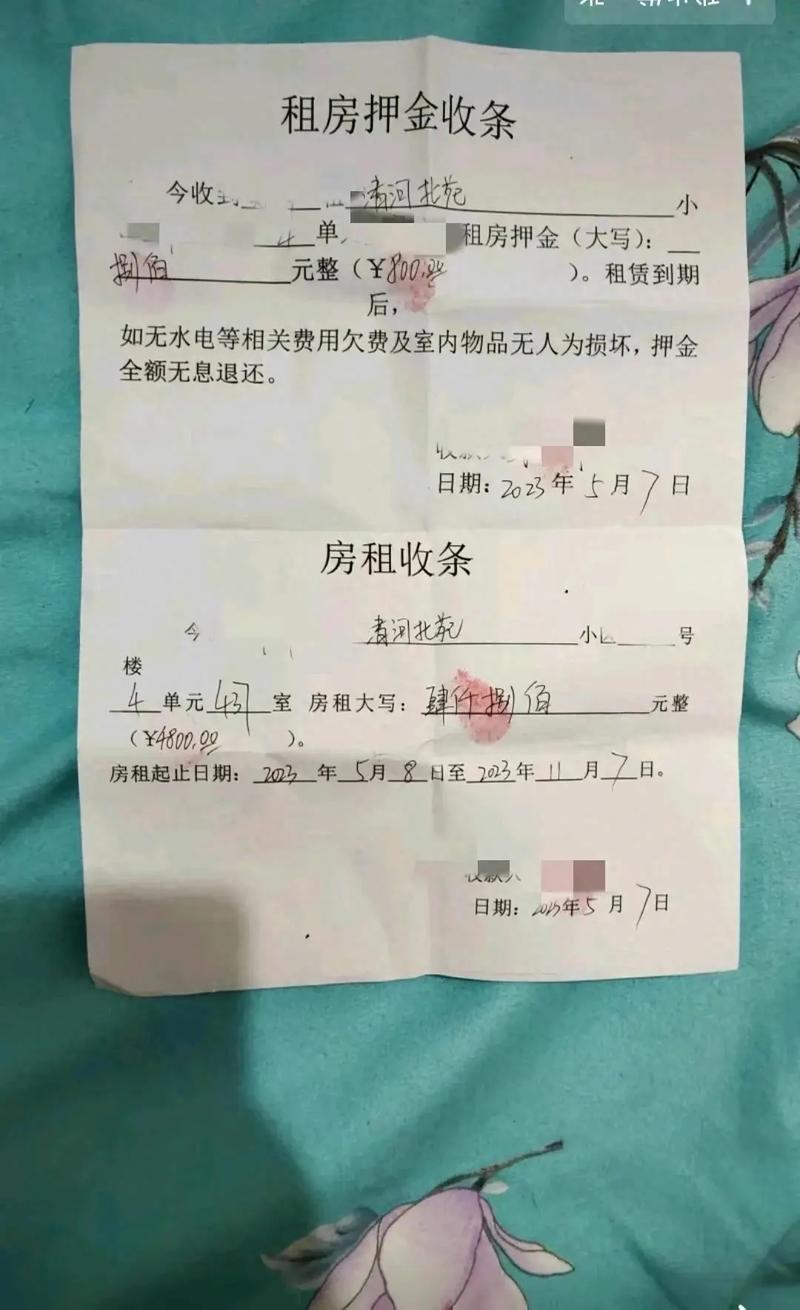 租房押金收条
今收到 清河北苑 小
4 单 租房押金（大写）：
捌佰 元整（￥800.00 ）。租赁到期
后，
如无水电等相关费用欠费及室内物品无人为损坏，押金
全额无息退还。
日期：2023年5月7日
房租收条
今 清河北苑 小 号
楼
4 单元 437 室 房租大写：肆仟捌佰 元整
（￥4800.00 ）。
房租起止日期：2023 年 5月 8 日至 2023年 11 月 7日。
收款人
日期：2023年5月7日